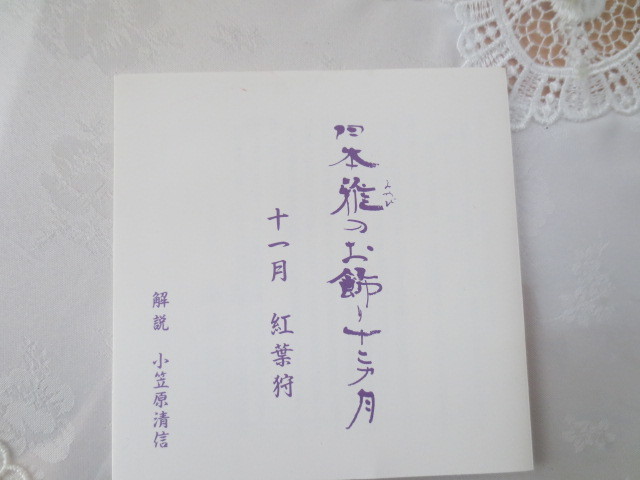 日本雅のお飾り十二ヵ月
みやび
十一月　紅葉狩
解説　小笠原清信